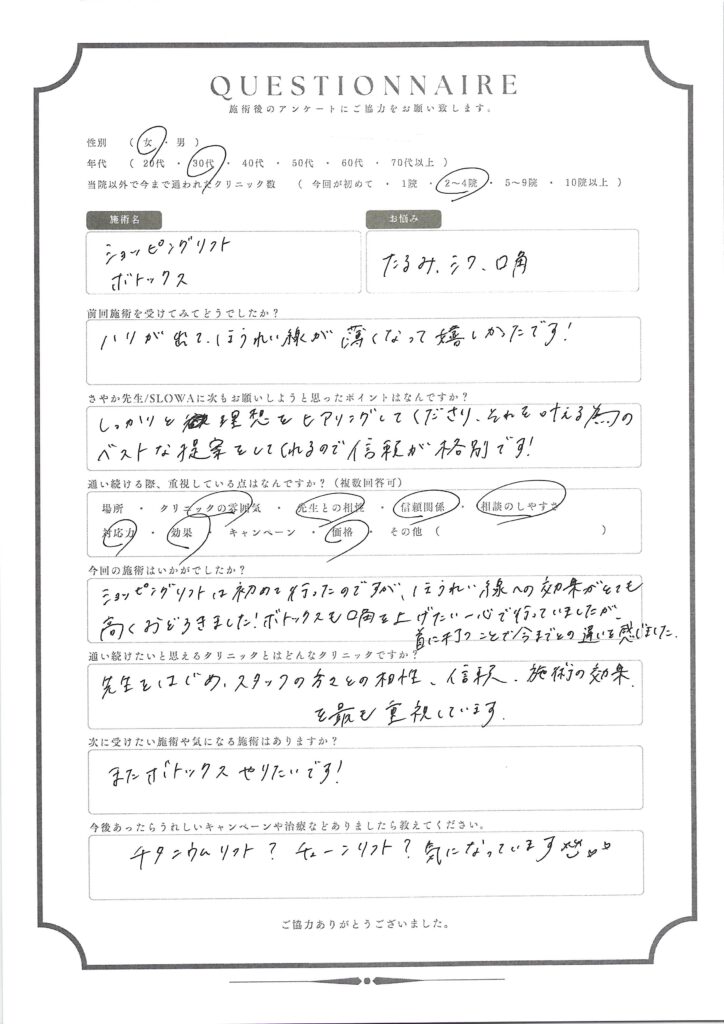 QUESTIONNAIRE
施術後のアンケートにご協力をお願い致します。
性別 ( 女 ・ 男 )
年代 ( 20代 ・ 30代 ・ 40代 ・ 50代 ・ 60代 ・ 70代以上 )
当院以外で今まで通われたクリニック数 ( 今回が初めて ・ 1院 ・ 2〜4院 ・ 5〜9院 ・ 10院以上 )
施術名 お悩み
ショッピングリフト
ボトックス
たるみ、シワ、口角
前回施術を受けてみてどうでしたか?
ハリが出て、ほうれい線が薄くなって嬉しかったです!
さやか先生/SLOWAに次もお願いしようと思ったポイントはなんですか?
しっかりと理想をヒアリングしてくださり、それを叶える為の
ベストな提案をしてくれるので信頼が格別です!
通い続ける際、重視している点はなんですか?(複数回答可)
場所 ・ クリニックの雰囲気 ・ 先生との相性 ・ 信頼関係 ・ 相談のしやすさ
対応力 ・ 効果 ・ キャンペーン ・ 価格 ・ その他 ( )
今回の施術はいかがでしたか?
ショッピングリフトは初めて行ったのですが、ほうれい線への効果がとても
高くおどろきました!ボトックスも口角を上げたい一心で行っていましたが、
首に打つことで今までとの違いを感じました。
通い続けたいと思えるクリニックとはどんなクリニックですか?
先生をはじめ、スタッフの方々との相性、信頼、施術の効果
を最も重視しています。
次に受けたい施術や気になる施術はありますか?
またボトックスやりたいです!
今後あったらうれしいキャンペーンや治療などありましたら教えてください。
チタニウムリフト? チェーンリフト? 気になっています
ご協力ありがとうございました。